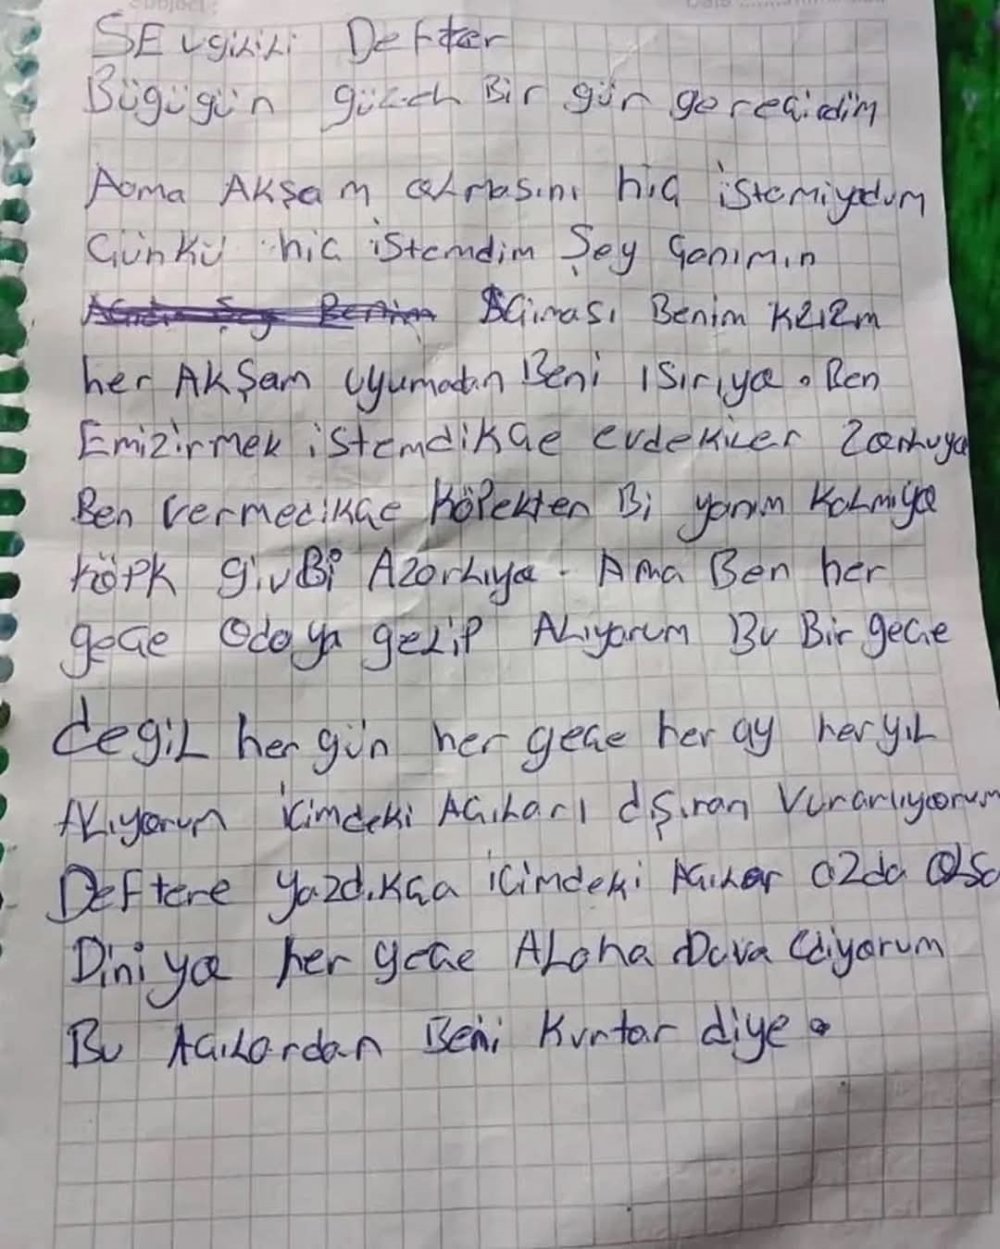 SEvgilili Defter
Bügügün güzeh Bir gün gereçiidim
Aoma AKŞam oLmasını hiç istemiyodum
Günkü hic istemdim Şey Canımın
Acıması Benim Kızım
her AKŞam Uyumadan Beni ısırıya. Ben
Emizirmek istemdikçe evdekiler Zorluya
Ben Vermedikçe Köpekten Bi yanım Kalmıya
Köpk givBi Azorlıya. Ama Ben her
gece Odaya gelip ALıyorum Bu Bir gece
degiL her gün her gece her ay her yıL
ALıyorum içimdeki Acıları dışıran Vurarlıyorum
DeFtere yazdıkça içimdeki Acılar azda Olsa
Diniya her gece ALaha Duva Ediyorum
Bu Acılardan Beni Kurtar diye.